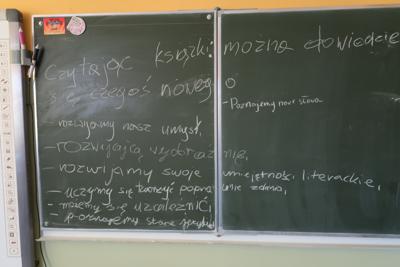 Czytając książki można dowiedzieć
się czegoś nowego
- Poznajemy nowe słowa
- rozwijamy nasz umysł,
- rozwijają wyobraźnię,
- rozwijamy swoje umiejętności literackie,
- uczymy się tworzyć poprawnie zdania,
- możemy się uzależnić,
- poznajemy stare